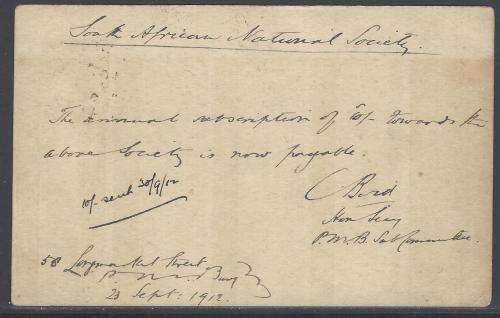 South African National Society.
The annual subscription of 10/- towards the
above Society is now payable.
C Bird
Hon Secy
P.M.B. Sub Committee.
10/- sent 30/9/12
58 Longmarket Street
P. M. Burg
23 Sept: 1912.